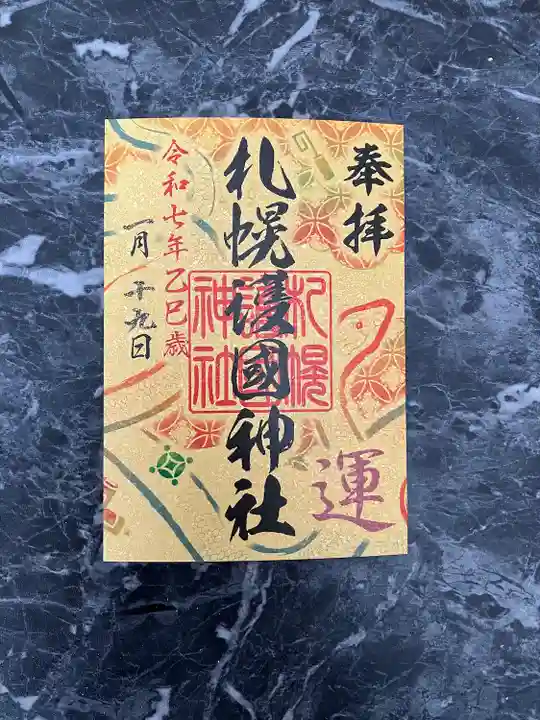 奉拝
札幌護國神社
札幌
護國
神社
運
令和七年乙巳歳
一月十九日